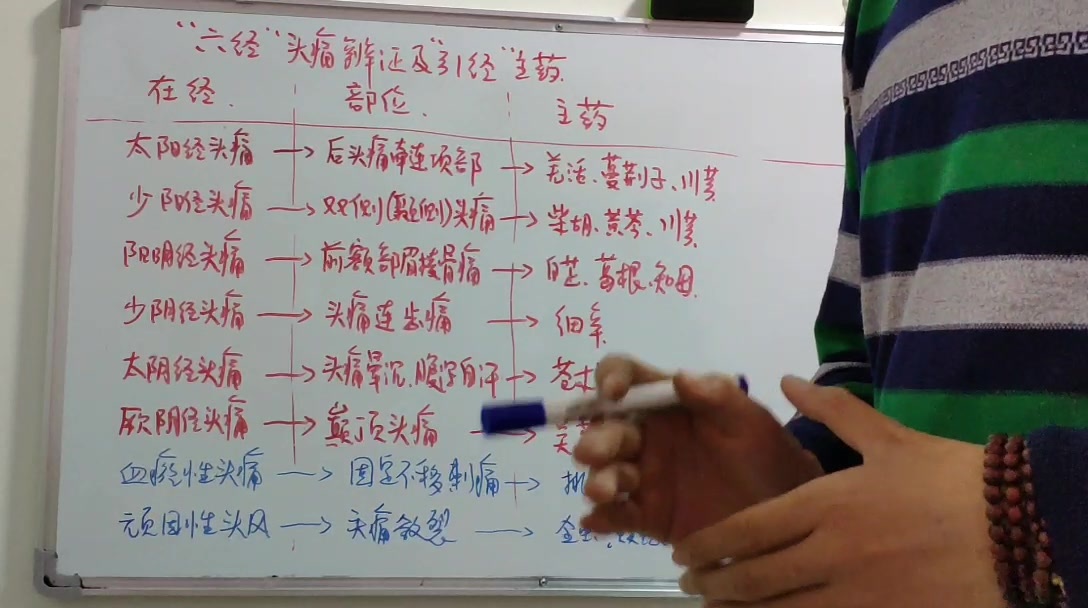 "六经"头痛辨证及"引经"主药
在经. 部位. 主药
太阳经头痛 → 后头痛牵连项部 → 羌活、蔓荆子、川芎
少阳经头痛 → 双侧(颞侧)头痛 → 柴胡、黄芩、川芎
阳明经头痛 → 前额部眉棱骨痛 → 白芷、葛根、知母
少阴经头痛 → 头痛连齿痛 → 细辛
太阴经头痛 → 头痛晕沉、腹泻自汗 → 苍术
厥阴经头痛 → 巅顶头痛 →
血瘀性头痛 → 固定不移刺痛 →
顽固性头风 → 头痛欲裂 → 全